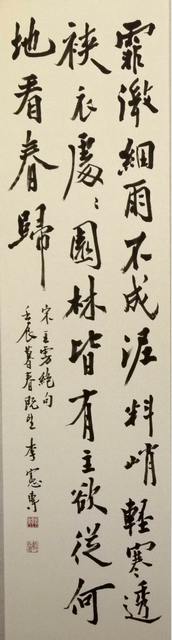 霏微細雨不成泥料峭輕寒透
裌衣處〻園林皆有主欲從何
地看春歸
宋王雱絕句
壬辰暮春既望 李憲專